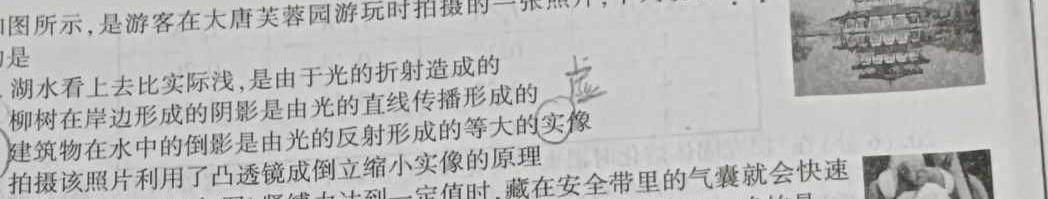 图所示,是游客在大唐芙蓉园游玩时拍摄的一张照片,
是
湖水看上去比实际浅,是由于光的折射造成的
柳树在岸边形成的阴影是由光的直线传播形成的
虚
建筑物在水中的倒影是由光的反射形成的等大的实像
拍摄该照片利用了凸透镜成倒立缩小实像的原理
定值时,藏在安全带里的气囊就会快速